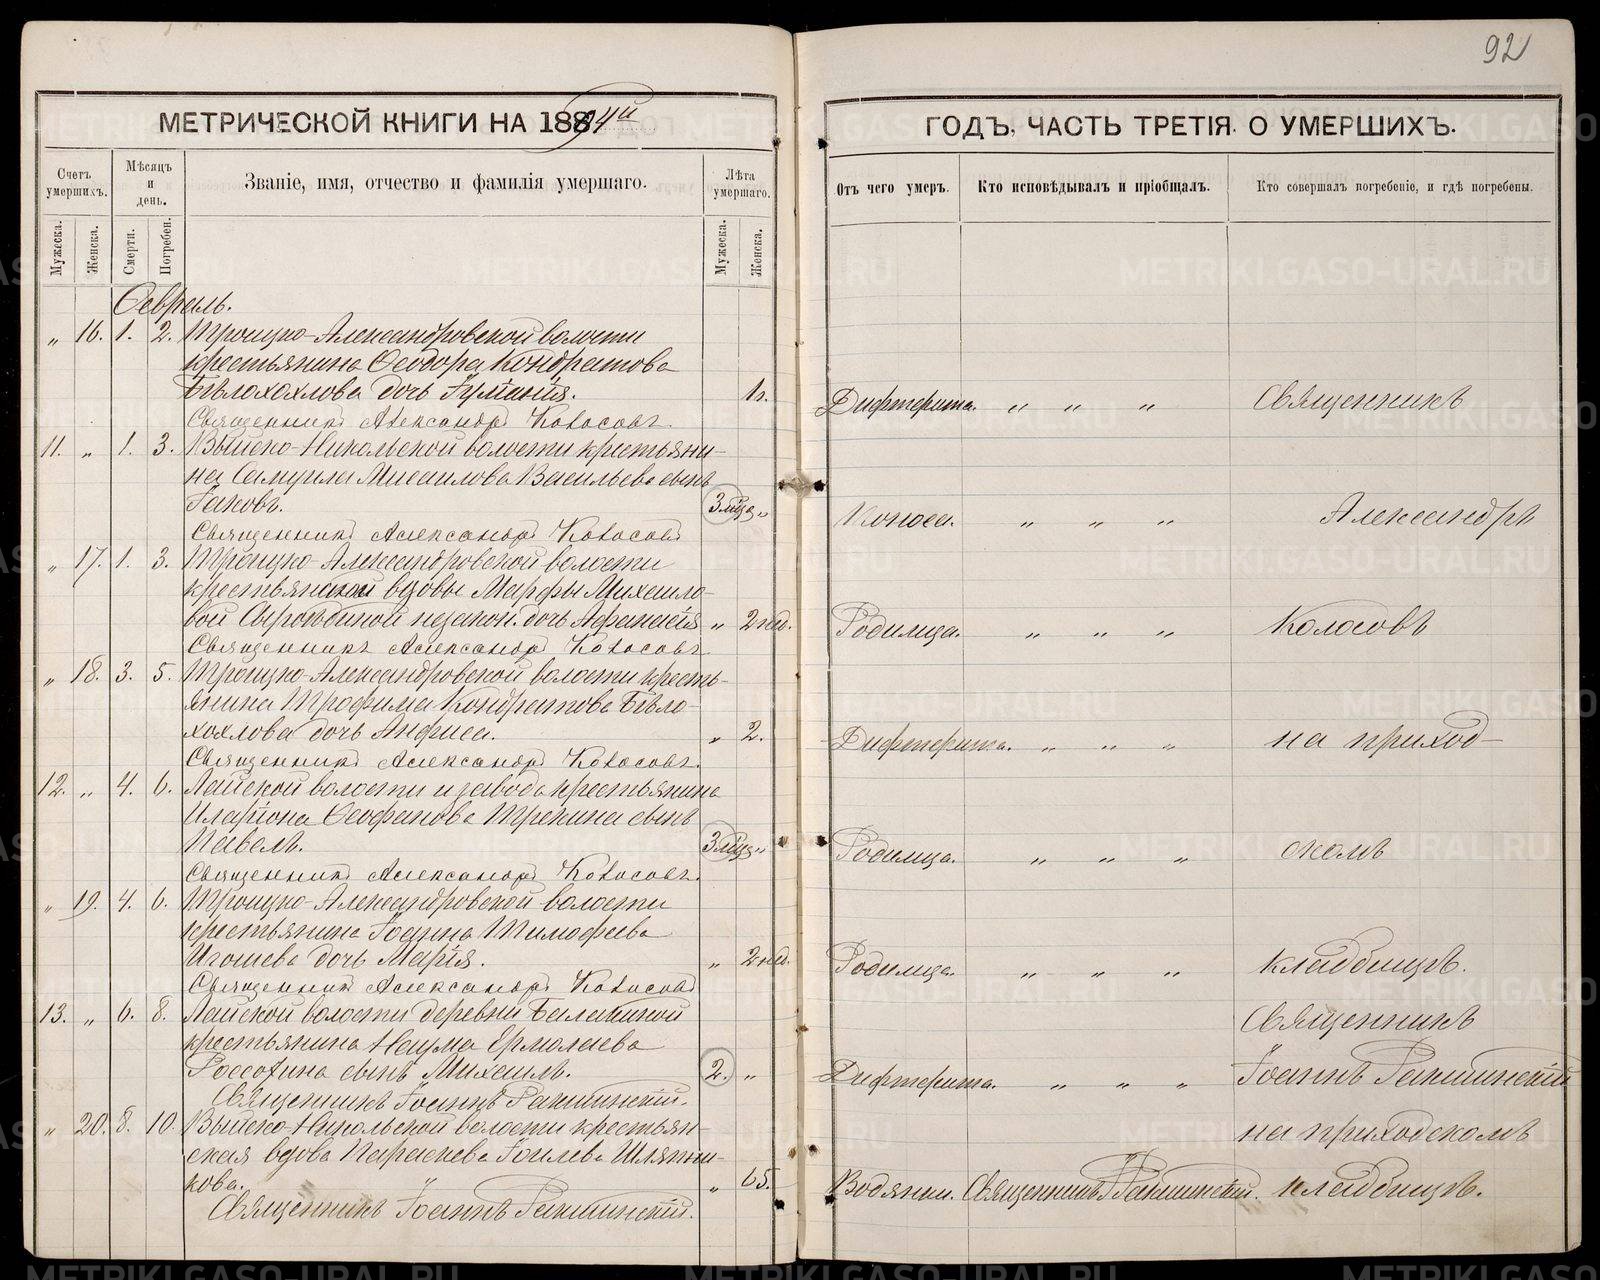 92
МЕТРИЧЕСКОЙ КНИГИ НА 1894й
ГОДЪ, ЧАСТЬ ТРЕТІЯ. О УМЕРШИХЪ.
Счетъ умершихъ.
Мѣсяцъ и день.
Званіе, имя, отчество и фамилія умершаго.
Лѣта умершаго.
Отъ чего умеръ.
Кто исповѣдывалъ и пріобщалъ.
Кто совершалъ погребеніе, и гдѣ погребены.
Мужеска.
Женска.
Смерти.
Погребен.
Мужеска.
Женска.
Февраль.
„ 16. 1. 2. Троицко-Александровской волости
крестьянина Ѳеодора Кондратова
Бѣлохохлова дочь 1г.
Дифтерита. „ „ „ Священникъ
Священникъ Александръ Колосовъ.
11. „ 1. 3. Выйско-Никольской волости крестьяни-
на Самуила Мисаилова Васильева сынъ
Іаковъ. 3 мѣс „
Поноса. „ „ „ Александръ
Священникъ Александръ Колосовъ
„ 17. 1. 3. Троицко-Александровской волости
крестьянской вдовы Марфы Михаило-
вой незакон. дочь Афанасія „ 2 нед.
Родимца. „ „ „ Колосовъ
Священникъ Александръ Колосовъ.
„ 18. 3. 5. Троицко-Александровской волости кресть-
янина Трофима Кондратова Бѣло-
хохлова дочь Анфиса. „ 2.
Дифтерита. „ „ „ на приход-
Священникъ Александръ Колосовъ.
12. „ 4. 6. Лайской волости и завода крестьянина
Иларіона Ѳеофанова сынъ
Павелъ. 3 мѣс „
Родимца. „ „ „ скомъ
Священникъ Александръ Колосовъ.
„ 19. 4. 6. Троицко-Александровской волости
крестьянина Іоанна Тимофеева
Игошева дочь Марія. „ 2 нед.
Родимца. „ „ „ кладбищѣ.
Священникъ Александръ Колосовъ
13. „ 6. 8. Лайской волости деревни Балакиной
крестьянина Наума Ермолаева
Россохина сынъ Михаилъ. 2. „
Священникъ
Дифтерита. „ „ „ Іоаннъ
Священникъ Іоаннъ
„ 20. 8. 10. Выйско-Никольской волости крестьян-
ская вдова Параскева Іоилева Шляпни-
кова. „ 65.
на приходскомъ
Водянки. Священникъ кладбищѣ.
Священникъ Іоаннъ
METRIKI.GASO-URAL.RU